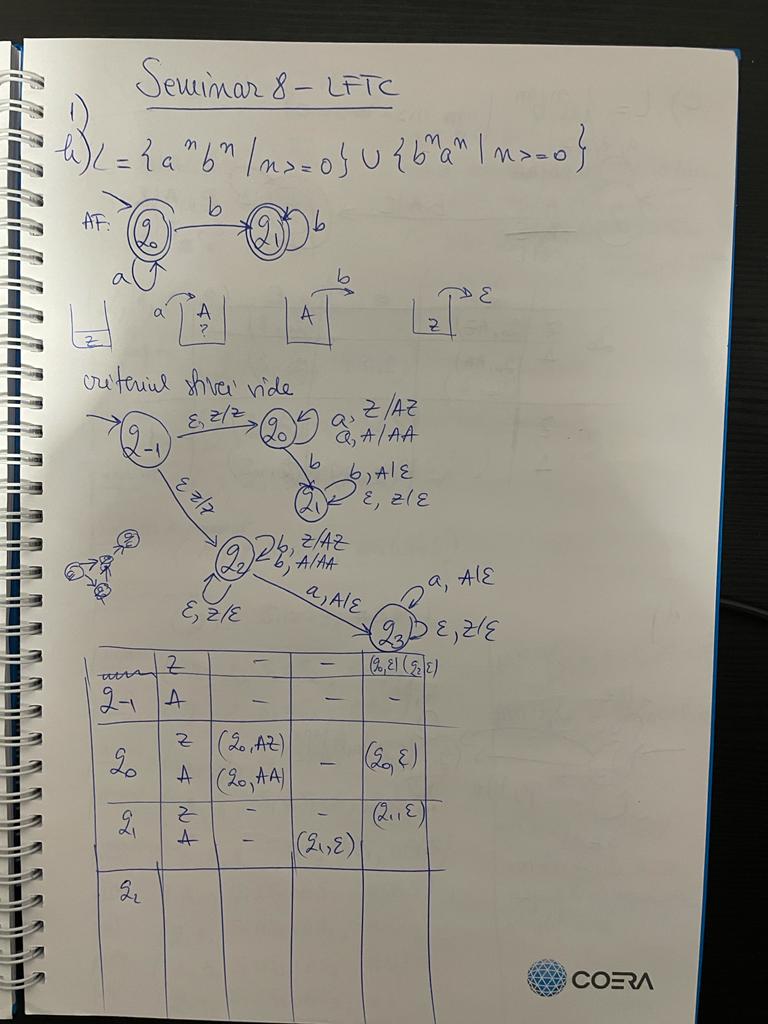 Seminar 8 - LFTC
1)
h) L = {a^n b^n / n >= 0} ∪ {b^n a^n | n >= 0}
AF: q0 b q1 b
a
Z a A ? A b Z ε
criteriul stivei vide
q-1 ε, Z/Z q0 a, Z/AZ
a, A/AA
b
q1 b, A/ε
ε, Z/ε
ε Z/Z
q2 b, Z/AZ
b, A/AA
ε, Z/ε
a, A/ε
q3 a, A/ε
ε, Z/ε
Z - - (q0,ε) (q2,ε)
q-1 A - - -
q0 Z (q0,AZ) - (q0,ε)
A (q0,AA)
q1 Z - - (q1,ε)
A - (q1,ε)
q2
COERA